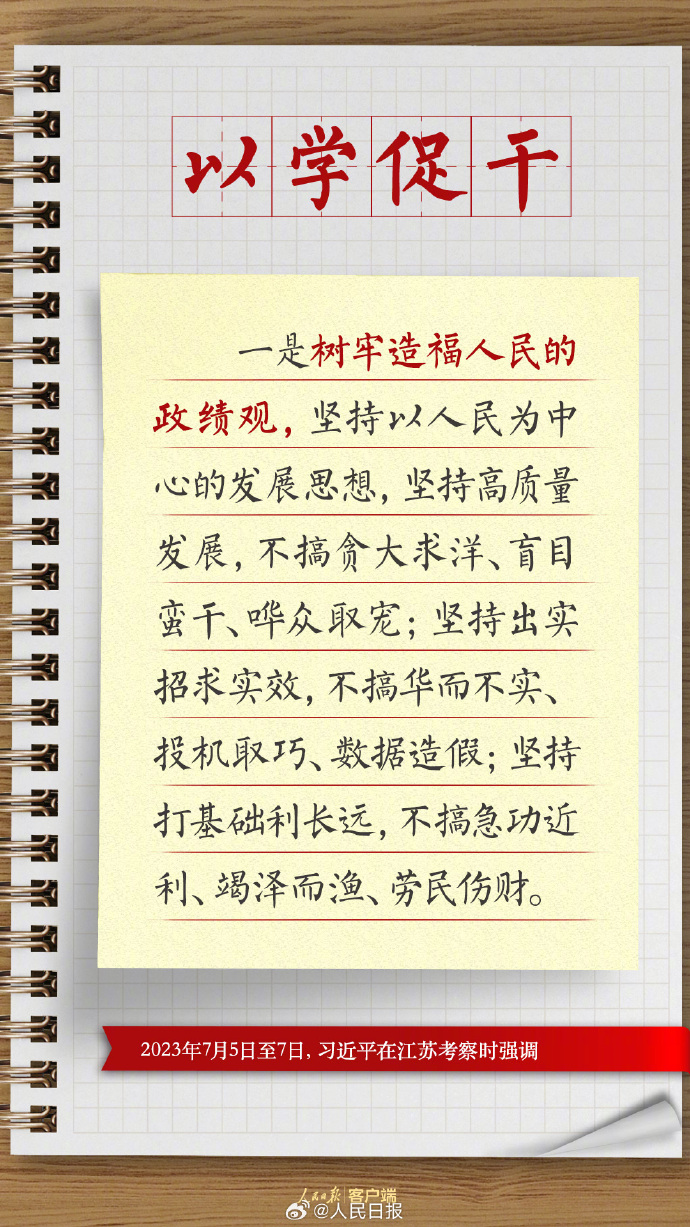 以学促干
一是树牢造福人民的
政绩观，坚持以人民为中
心的发展思想，坚持高质量
发展，不搞贪大求洋、盲目
蛮干、哗众取宠；坚持出实
招求实效，不搞华而不实、
投机取巧、数据造假；坚持
打基础利长远，不搞急功近
利、竭泽而渔、劳民伤财。
2023年7月5日至7日，习近平在江苏考察时强调
人民日报 客户端
@人民日报